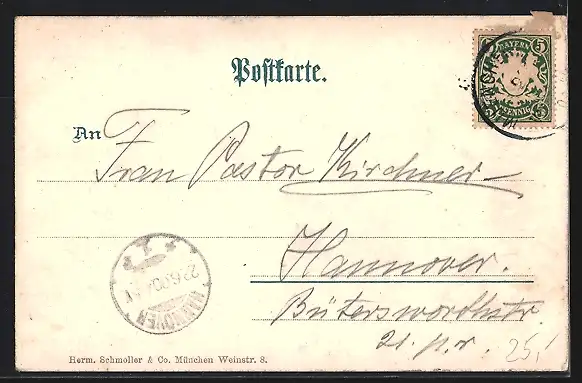 BAYERN
5 5
PFENNIG
Postkarte.
An Frau Pastor Kirchner
Hannover.
Bütersworthstr
21. p. r. 25,-
HANNOVER
Herm. Schmoller & Co. München Weinstr. 8.